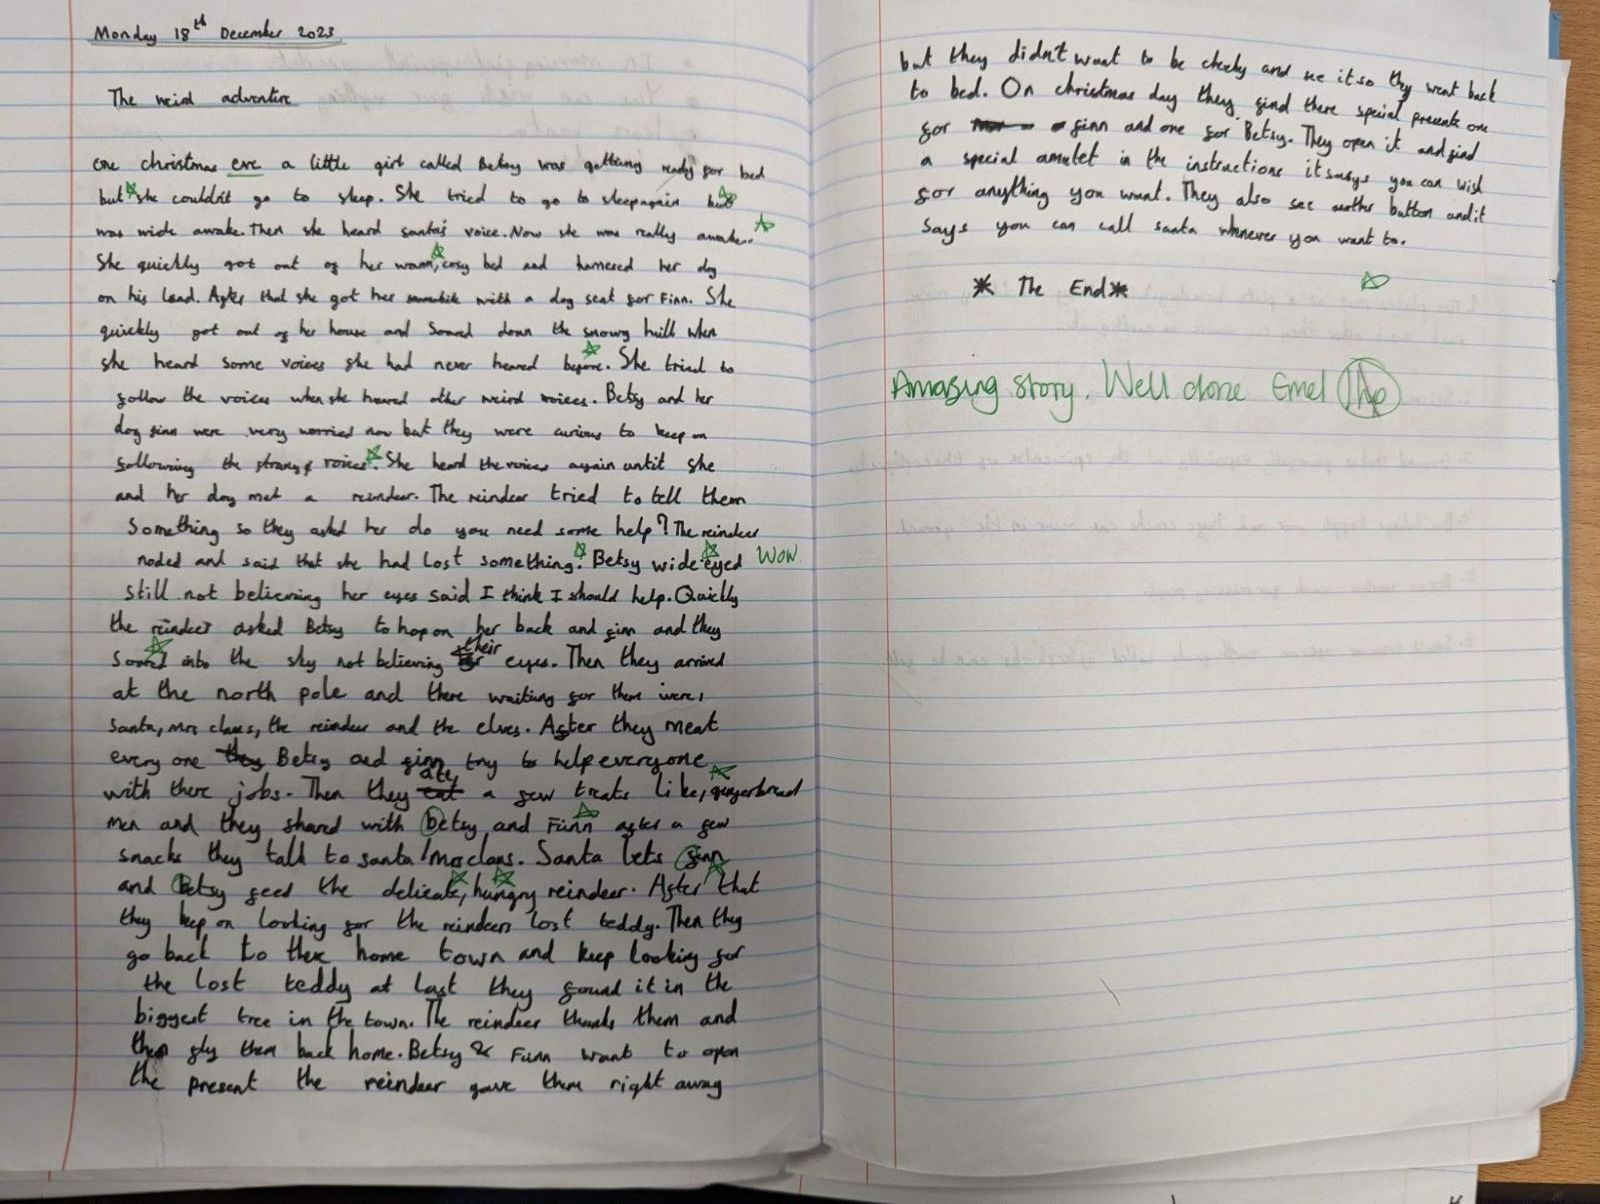 Monday 18th December 2023
The weird adventure
one christmas eve a little girl called Betsy was gettung ready for bed
but she couldn't go to sleep. She tried to go to sleep again but
was wide awake. Then she heard santa's voice. Now she was really awake.
She quickly got out of her warm, cosy bed and harnered her dog
on his lead. After that she got her with a dog seat for Finn. She
quickly got out of her house and Soared down the snowy hill when
she heard some voices she had never heared before. She tried to
follow the voices when she heared other weird voices. Betsy and her
dog finn were very worried now but they were curious to keep on
following the strange voices. She heard the voices again until she
and her dog met a reindeer. The reindeer tried to tell them
Something so they asked her do you need some help? The reindeer
noded and said that she had lost something. Betsy wide-eyed WOW
still not believing her eyes said I think I should help. Quickly
the reindeer asked Betsy to hop on her back and finn and they
Soared into the sky not believing their eyes. Then they arrived
at the north pole and there waiting for them were,
Santa, mrs claus, the reindeer and the elves. After they meat
every one they Betsy and finn try to help everyone
with there jobs. Then they ate a few treats like, gingerbread
men and they shared with betsy and Finn after a few
snacks they talk to santa/mrs claus. Santa lets finn
and Betsy feed the delicate, hungry reindeer. After that
they keep on looking for the reindeers lost teddy. Then they
go back to there home town and keep looking for
the lost teddy at last they found it in the
biggest tree in the town. The reindeer thanks them and
then fly them back home. Betsy & Finn want to open
the present the reindeer gave them right away
but they didn't want to be cheeky and see it so they went back
to bed. On christmas day they find there special presents one
for finn and one for Betsy. They open it and find
a special amulet in the instructions it says you can wish
for anything you want. They also see another button and it
Says you can call santa whenever you want to.
* The End *
Amazing story. Well done Emel 1hp